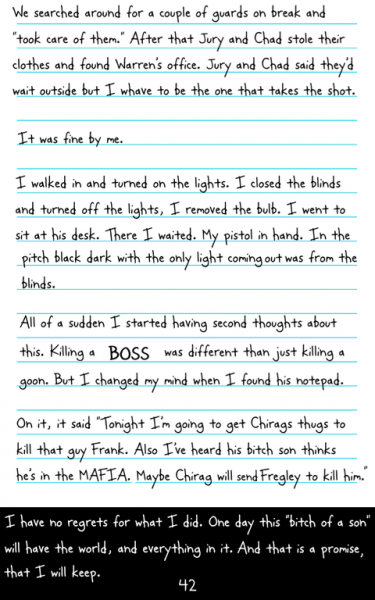 We searched around for a couple of guards on break and
"took care of them." After that Jury and Chad stole their
clothes and found Warren's office. Jury and Chad said they'd
wait outside but I whave to be the one that takes the shot.
It was fine by me.
I walked in and turned on the lights. I closed the blinds
and turned off the lights, I removed the bulb. I went to
sit at his desk. There I waited. My pistol in hand. In the
pitch black dark with the only light coming out was from the
blinds.
All of a sudden I started having second thoughts about
this. Killing a BOSS was different than just killing a
goon. But I changed my mind when I found his notepad.
On it, it said "Tonight I'm going to get Chirags thugs to
kill that guy Frank. Also I've heard his bitch son thinks
he's in the MAFIA. Maybe Chirag will send Fregley to kill him."
I have no regrets for what I did. One day this "bitch of a son"
will have the world, and everything in it. And that is a promise,
that I will keep.
42